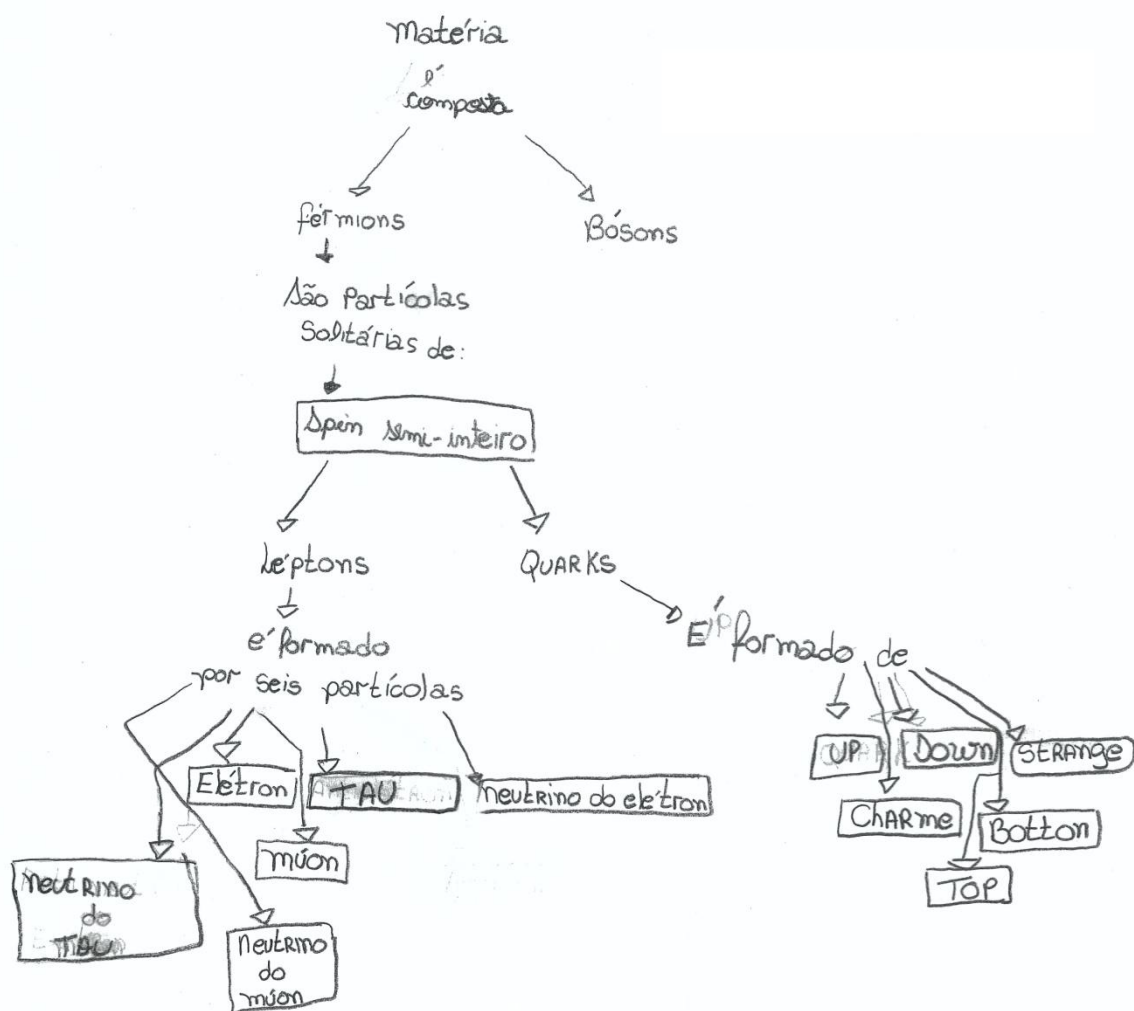 Matéria
é
composta
férmions
Bósons
São Partícolas
Solitárias de:
Spin semi-inteiro
Léptons
QUARKS
é formado
por seis partícolas
É formado de
Elétron
TAU
neutrino do elétron
múon
neutRino
do
TAU
neutRino
do
múon
UP
Down
StRANGE
ChARme
Botton
TOP